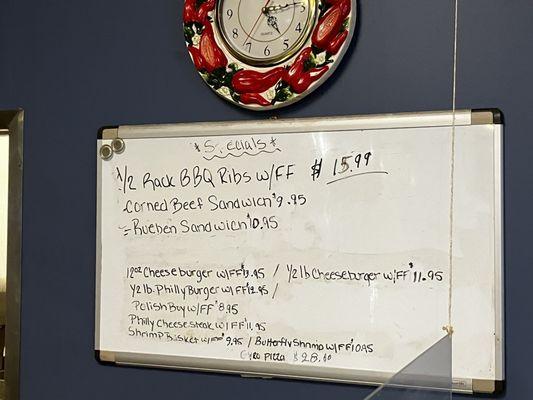 9 3 8 4 7 6 5
QUARTZ
*Specials*
1/2 Rack BBQ Ribs w/FF $15.99
Corned Beef Sandwich $9.95
Rueben Sandwich $10.95
12oz Cheeseburger w/FF $13.95 / 1/2 lb Cheeseburger w/FF $11.95
1/2 lb. Philly Burger w/FF $12.95 /
Polish Boy w/FF $8.95
Philly Cheesesteak w/FF $11.95
Shrimp Basket w/FF $9.95 / Butterfly Shrimp w/FF $10.95
Gyro Pizza $28.